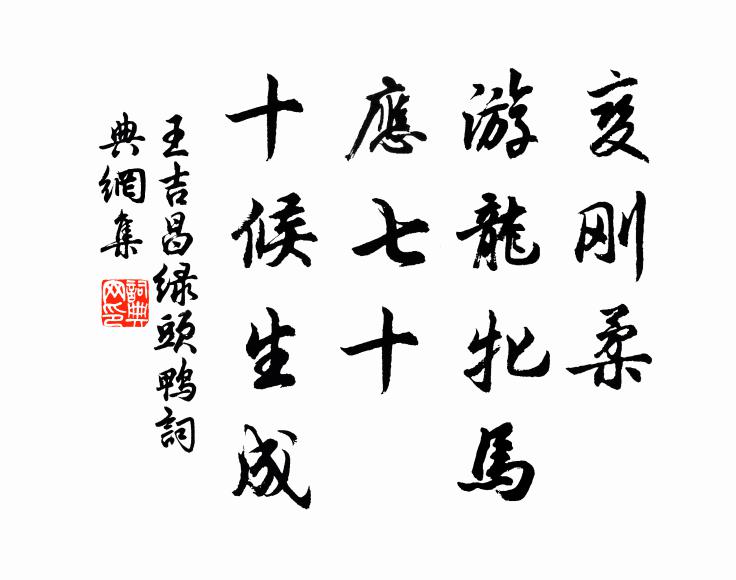 变刚柔
游龍牝馬
應七十
十候生成
王吉昌绿頭鴨詞
典網集
詞典网印